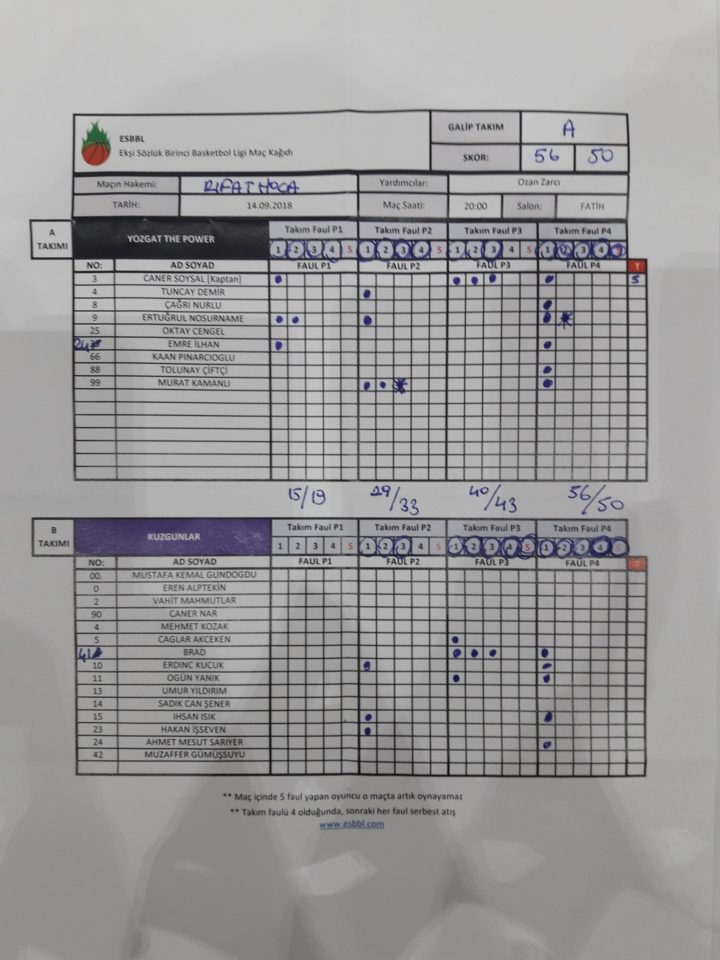 ESBBL
Ekşi Sözlük Birinci Basketbol Ligi Maç Kağıdı
GALİP TAKIM A
SKOR: 56 50
Maçın Hakemi: RIFAT HOCA Yardımcılar: Ozan Zarcı
TARİH: 14.09.2018 Maç Saati: 20:00 Salon: FATİH
A TAKIMI YOZGAT THE POWER Takım Faul P1 Takım Faul P2 Takım Faul P3 Takım Faul P4
1 2 3 4 5 1 2 3 4 5 1 2 3 4 5 1 2 3 4 5
NO: AD SOYAD FAUL P1 FAUL P2 FAUL P3 FAUL P4 T
3 CANER SOYSAL [Kaptan] 5
4 TUNCAY DEMİR
8 ÇAĞRI NURLU
9 ERTUĞRUL NOSURNAME
25 OKTAY CENGEL
24 EMRE İLHAN
66 KAAN PINARCIOGLU
88 TOLUNAY ÇİFTÇİ
99 MURAT KAMANLI
15/19 29/33 40/43 56/50
B TAKIMI KUZGUNLAR Takım Faul P1 Takım Faul P2 Takım Faul P3 Takım Faul P4
1 2 3 4 5 1 2 3 4 5 1 2 3 4 5 1 2 3 4 5
NO: AD SOYAD FAUL P1 FAUL P2 FAUL P3 FAUL P4
00. MUSTAFA KEMAL GUNDOGDU
0 EREN ALPTEKİN
2 VAHİT MAHMUTLAR
90 CANER NAR
4 MEHMET KOZAK
5 CAGLAR AKCEKEN
41 BRAD
10 ERDINC KUCUK
11 OGÜN YANIK
13 UMUR YILDIRIM
14 SADIK CAN ŞENER
15 IHSAN ISIK
23 HAKAN İŞSEVEN
24 AHMET MESUT SARIYER
42 MUZAFFER GÜMÜŞSUYU
** Maç içinde 5 faul yapan oyuncu o maçta artık oynayamaz
** Takım faulü 4 olduğunda, sonraki her faul serbest atış
www.esbbl.com